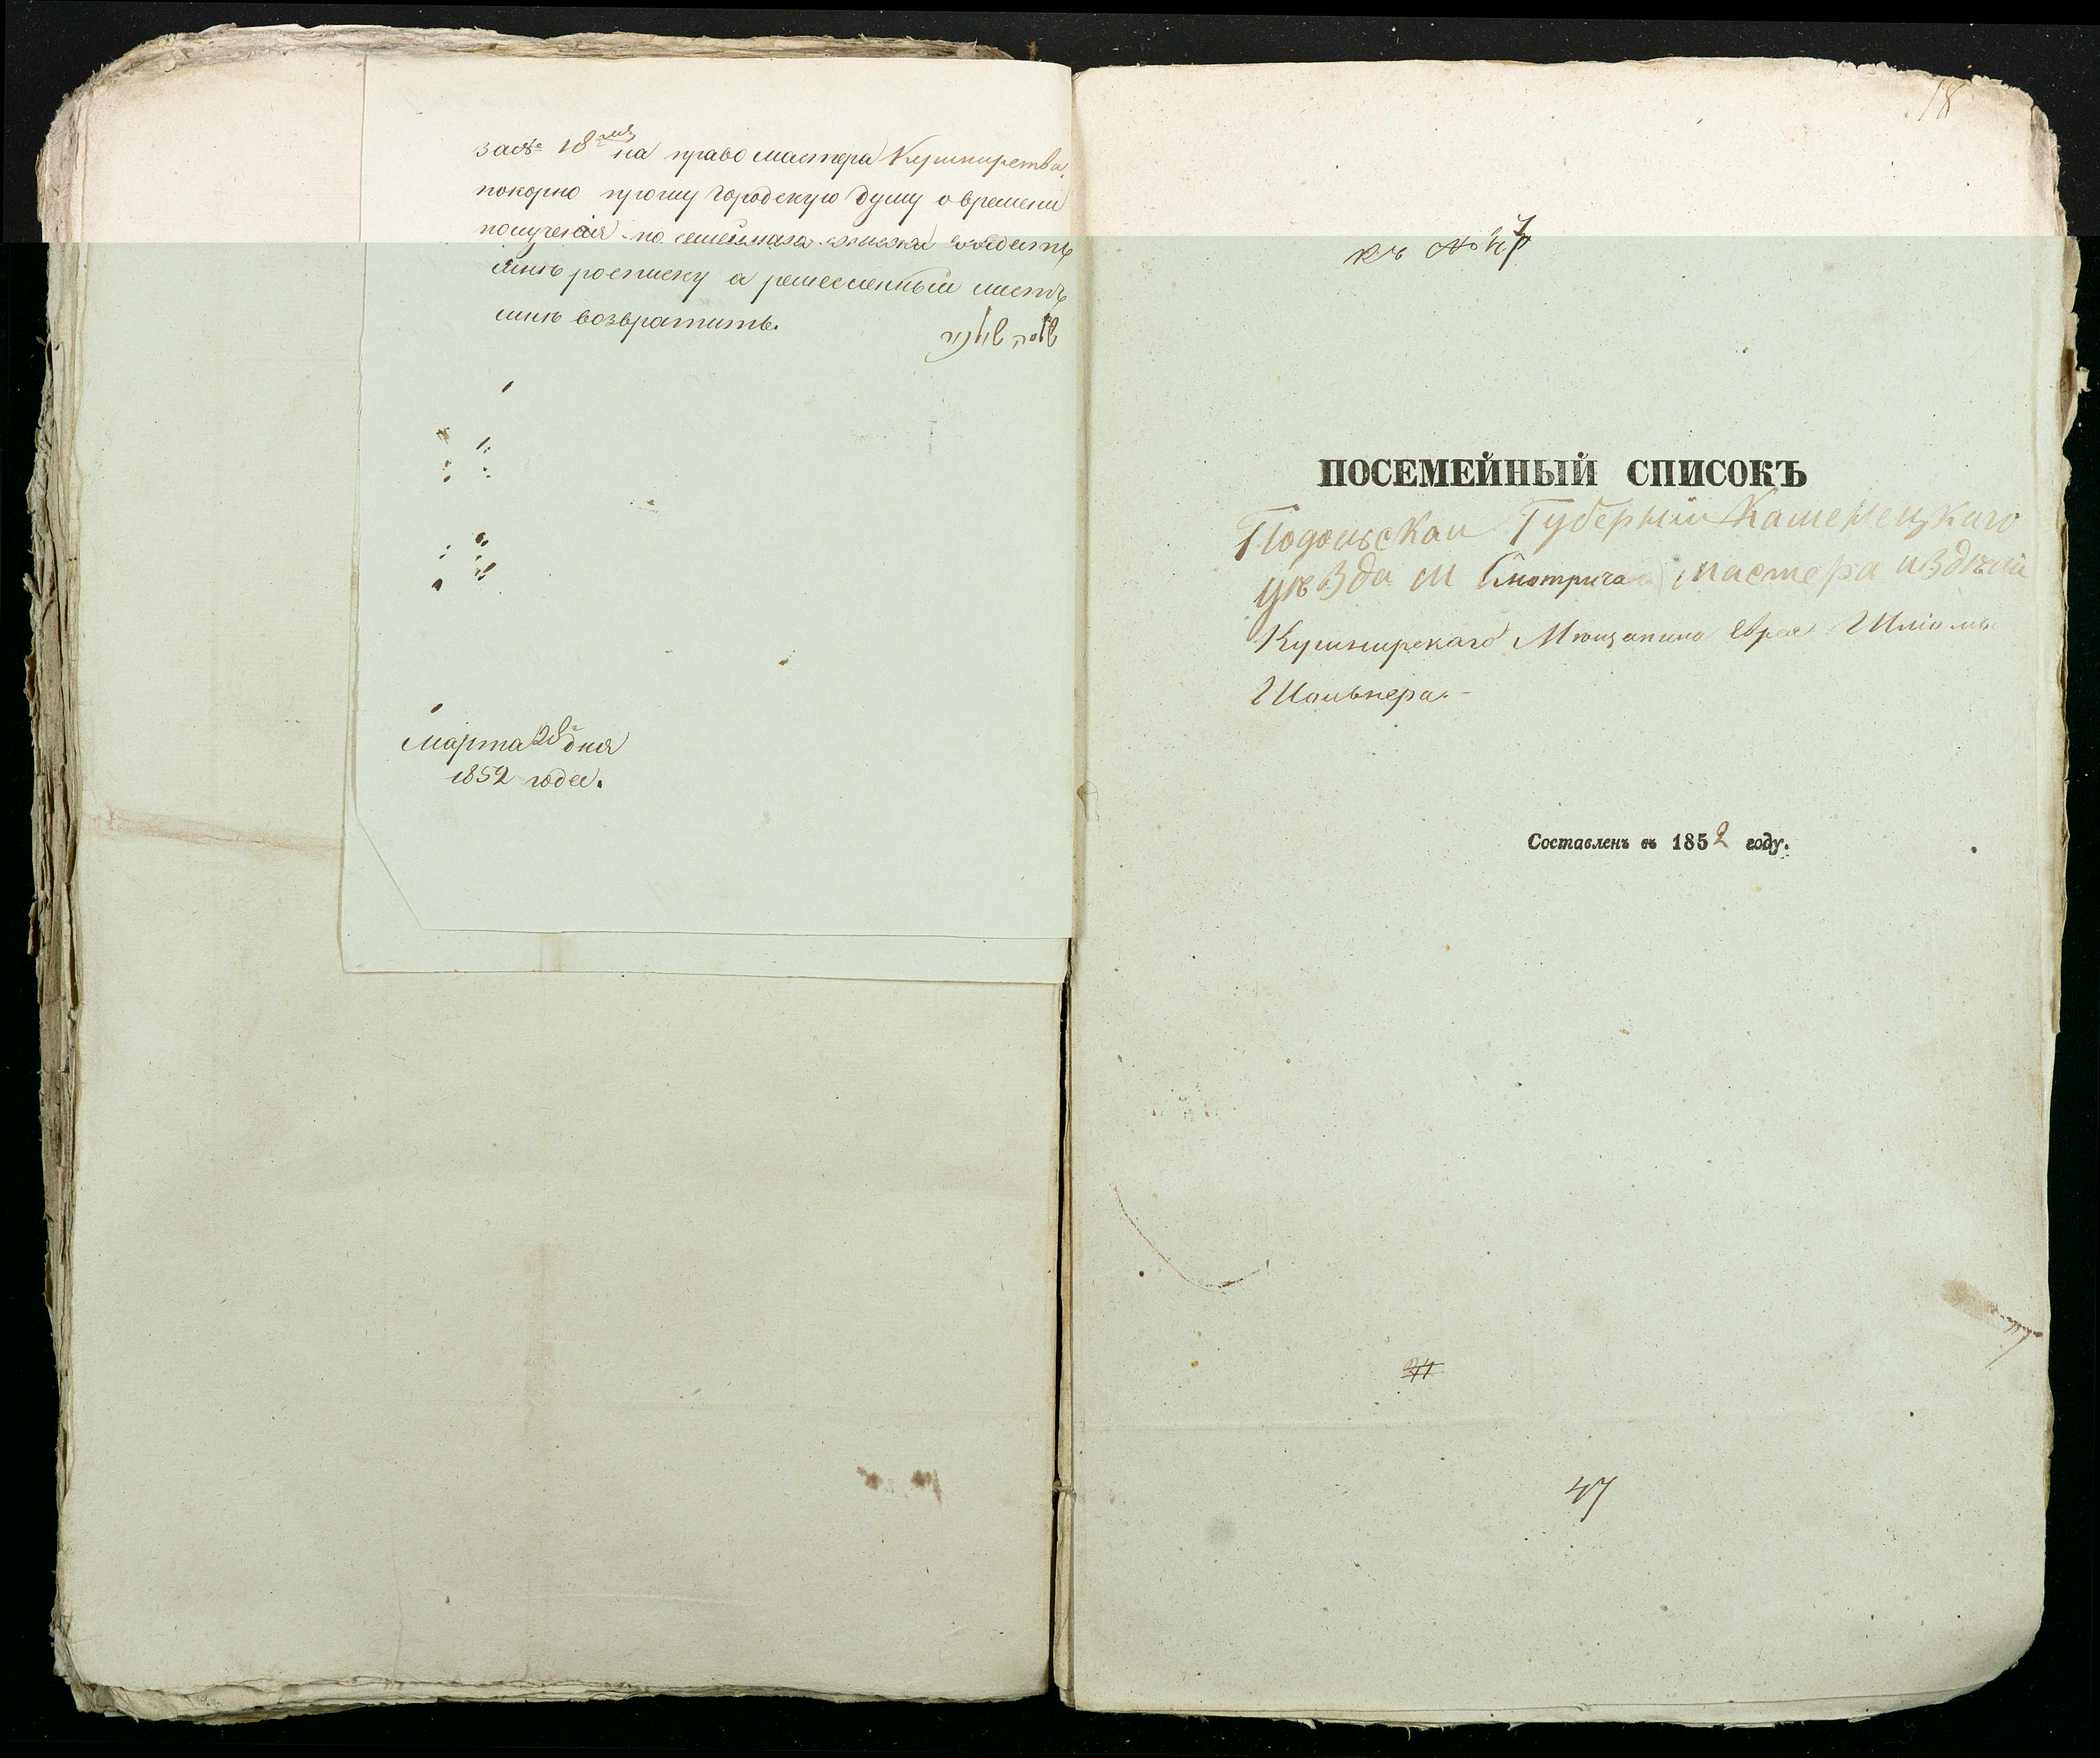 за № 18 на право мастера Кушнирства,
покорно прошу Городскую Думу о времени
получения посемейнаго списка выдать
мне росписку а ремесленный листъ
мнѣ возвратить.
Марта 28 дня
1852 года.
18
къ №
ПОСЕМЕЙНЫЙ СПИСОКЪ
Подольской Губерніи Каменецкаго
уѣзда м Смотрича мастера издѣлій
Кушнирскаго Мѣщанина Еврея Шліомы
Шльвнера.
Составленъ въ 1852 году.
47